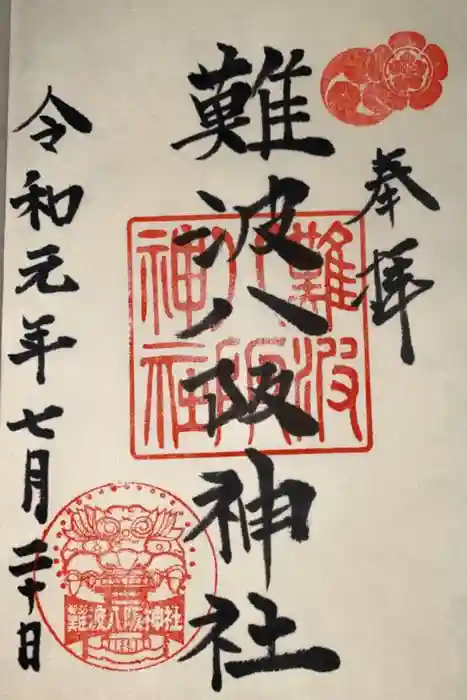 奉拝
難波八阪神社
難波
八阪
神社
令和元年七月二十日
難波八阪神社